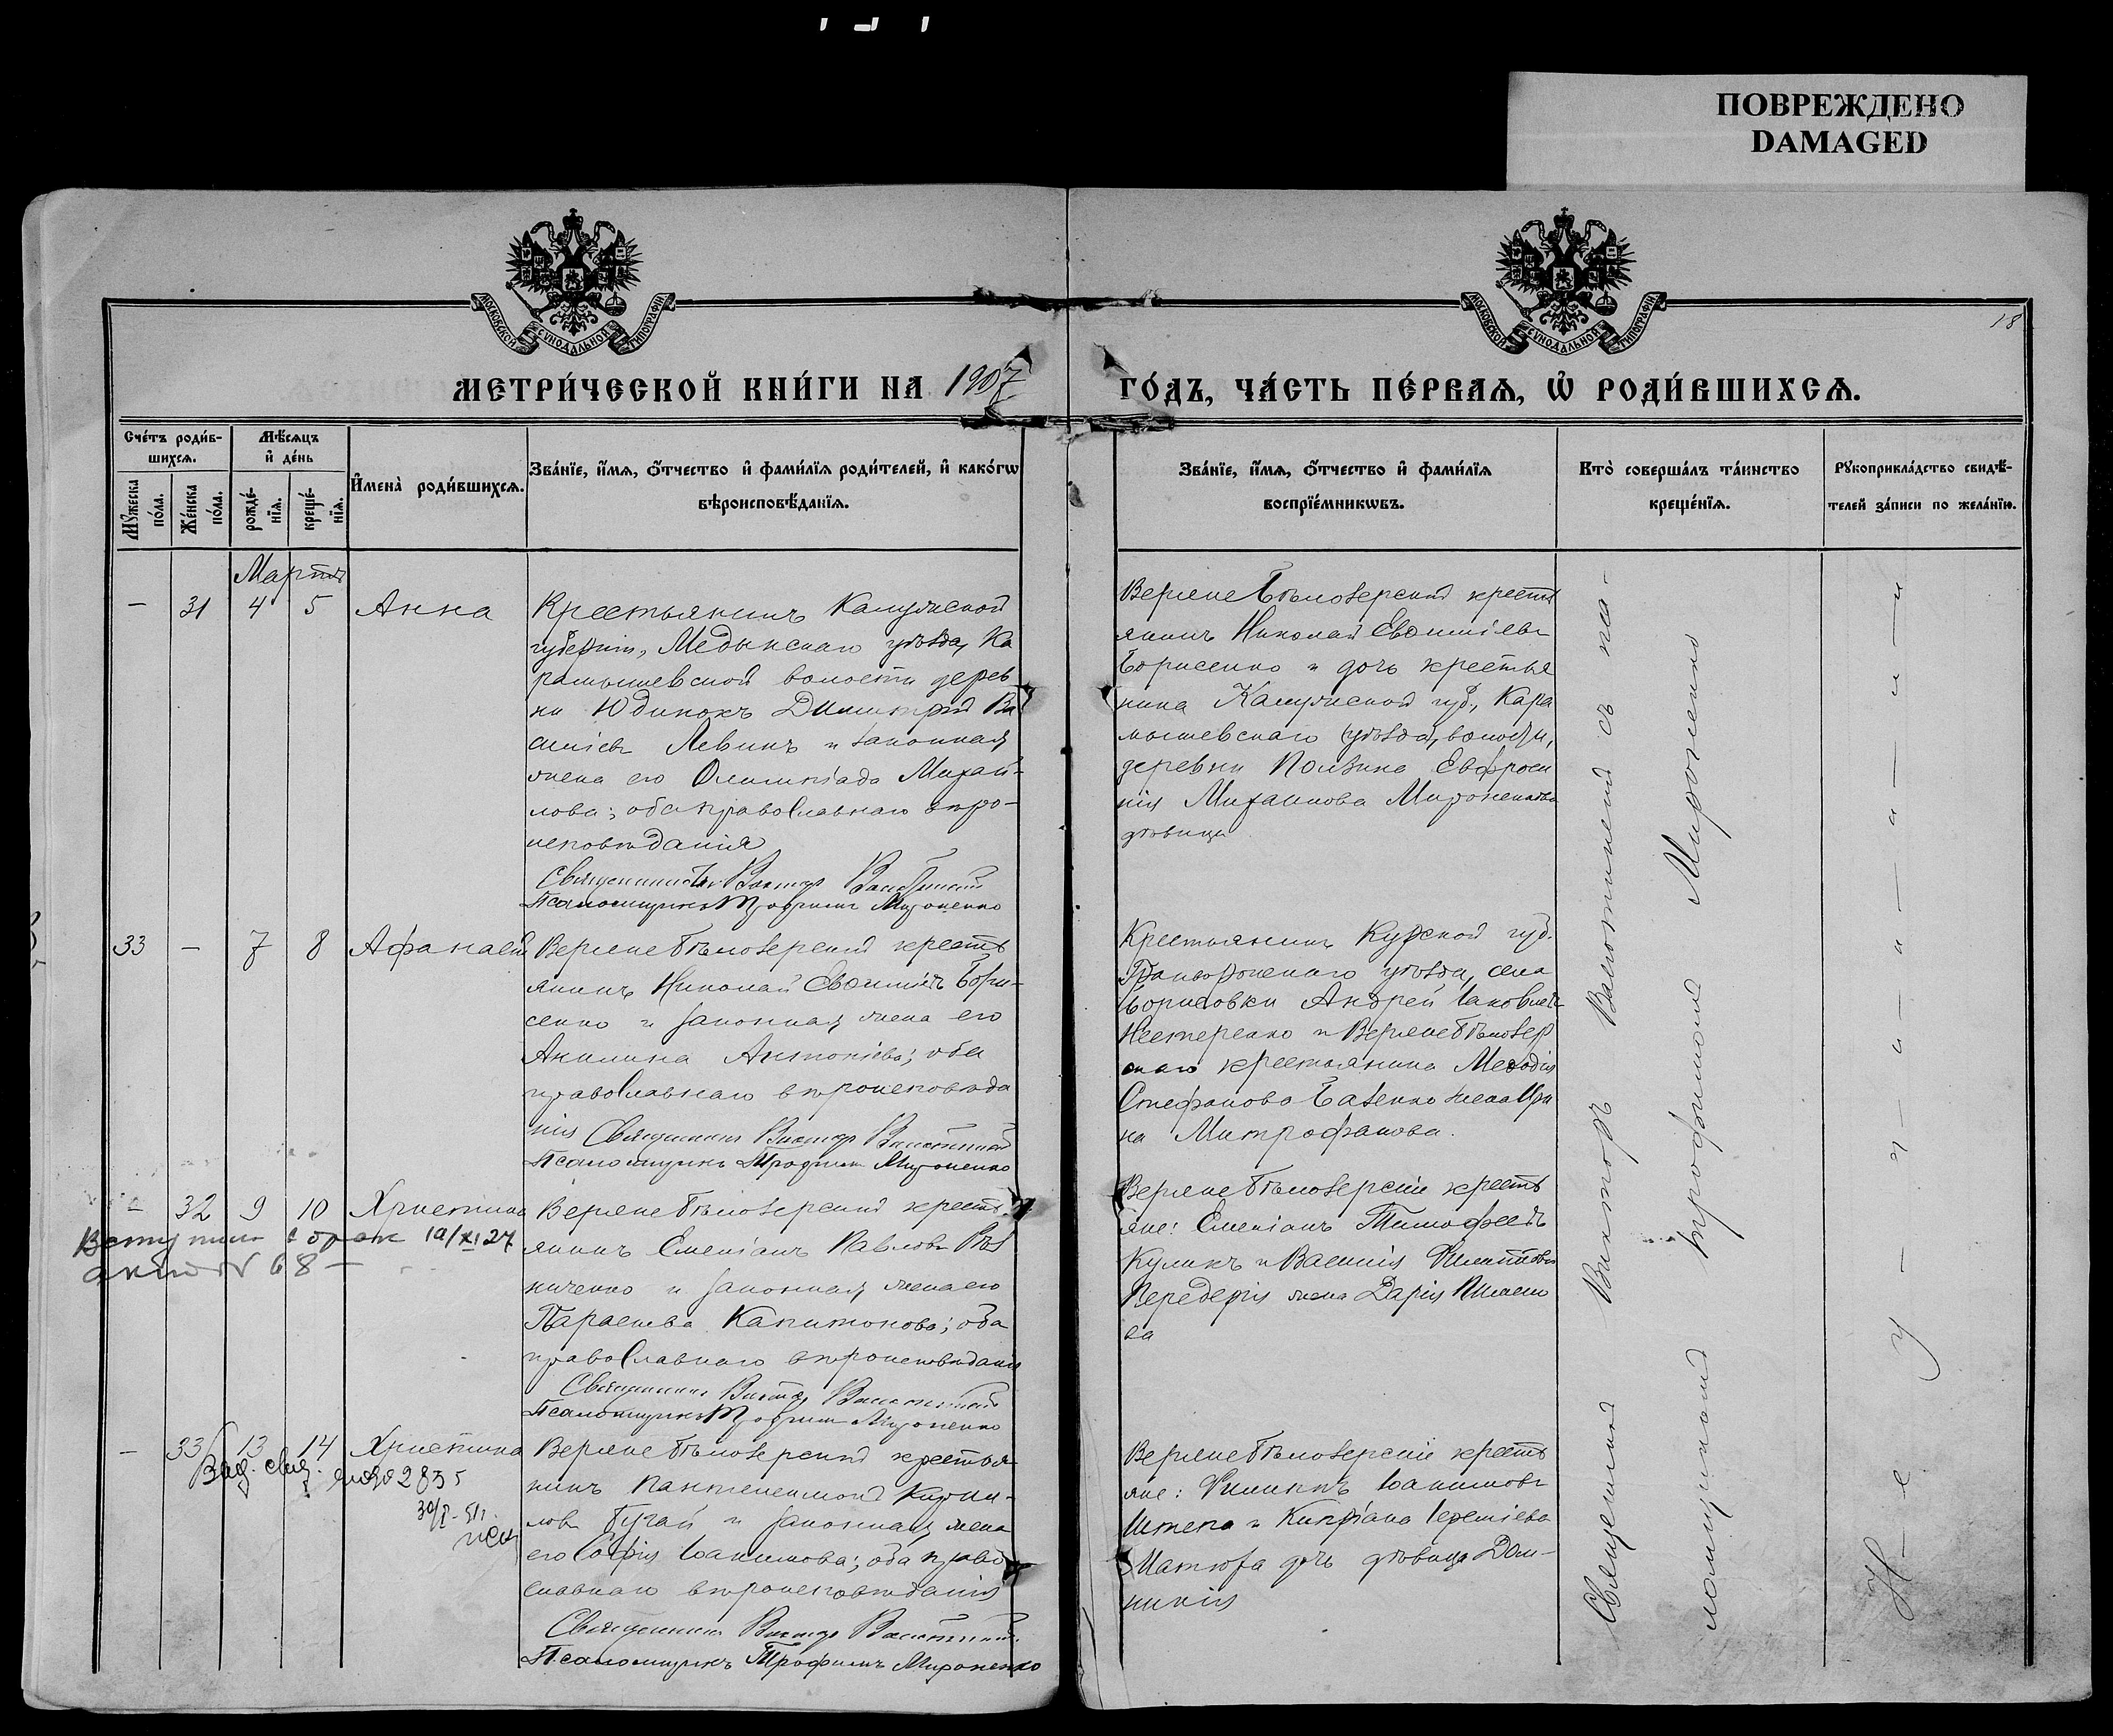 ПОВРЕЖДЕНО
DAMAGED
МОСКОВСКОЙ СѴНОДАЛЬНОЙ ТИПОГРАФІИ
МОСКОВСКОЙ СѴНОДАЛЬНОЙ ТИПОГРАФІИ
18
МЕТРИ́ЧЕСКОЙ КНИ́ГИ НА 1907
ГО́ДЪ, ЧА́СТЬ ПЕ́РВАѦ, Ѡ҆ РОДИ́ВШИХСѦ.
Сче́тъ роди́в-
шихсѧ.
Мѣ́сѧцъ
и҆ де́нь
Мꙋ́жеска по́ла.
Же́нска по́ла.
рожде́-нїѧ.
креще́-нїѧ.
И҆мена̀ роди́вшихсѧ.
Зва́нїе, и҆́мѧ, ѻ҆́тчество и҆ фами́лїѧ роди́телей, и҆ како́гѡ
вѣроисповѣ́данїѧ.
Зва́нїе, и҆́мѧ, ѻ҆́тчество и҆ фами́лїѧ
воспрїе́мникѡвъ.
Кто̀ соверша́лъ та́инство
креще́нїѧ.
Рꙋкоприкла́дство свидѣ́-
телей за́писи по жела́нїю.
Марта
— 31 4 5 Анна
Крестьянинъ Калужской
губерніи, Медынскаго уѣзда, Ка
рамышевской волости дерев
ни Юдинокъ Димитрій Ва
силіевъ Левинъ и законная
жена его Олимпіада Михай-
лова; оба православнаго вѣро-
исповѣданія
Священникъ Викторъ
Псаломщикъ Трофимъ Мироненко
Верхнебѣлозерскій кресть
янинъ Николай Евѳиміевъ
Борисенко и дочь крестья
нина Калужской губ., Кара
мышевскаго уѣзда, волости,
деревни Ползина Евфроси
нія Михаилова Мироненкова
дѣвица
33 — 7 8 Афанасій
Верхнебѣлозерскій кресть
янинъ Николай Евѳиміевъ Бори-
сенко и законная жена его
Акилина Антоніева; оба
православнаго вѣроисповѣда
нія Священникъ Викторъ
Псаломщикъ Трофимъ Мироненко
Крестьянинъ Курской губ.
Грайворонскаго уѣзда, села
Борисовки Андрей Іаковлевъ
Нестеренко и Верхнебѣлозер
скаго крестьянина Меѳодія
Стефанова Базенко жена Ири
на Митрофанова.
— 32 9 10 Христина
Вступила в брак 10/XI 27
акт № 68 —
Верхнебѣлозерскій кресть
янинъ Емеліанъ Павловъ Рѣз
ниченко и законная жена его
Параскева Капитонова; оба
православнаго вѣроисповѣданія
Священникъ Викторъ
Псаломщикъ Трофимъ Мироненко
Верхнебѣлозерскіе кресть
яне: Емеліанъ Тимофеевъ
Куликъ и Василія Филиппова
Передерія жена Дарія
— 33 13 14 Христина
Выд. свид. 2835
Верхнебѣлозерскій крестья
нинъ Пантелеимонъ Кирил-
ловъ Бугай и законная жена
его Софія Іоакимова; оба право
славнаго вѣроисповѣданія
Священникъ Викторъ
Псаломщикъ Трофимъ Мироненко
Верхнебѣлозерскіе кресть
яне: Филиппъ Іоакимовъ
Штепа и Кипріана Іереміева
дочь дѣвица Дом-
никія
Священникъ Викторъ съ пса-
ломщикомъ Трофимомъ Мироненко